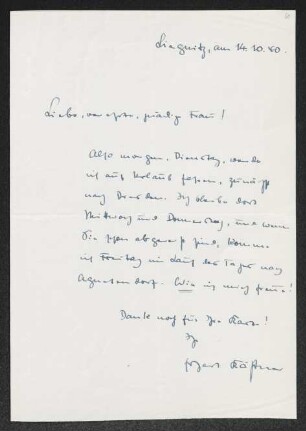 Liegnitz, am 14.10.40.
Liebe, verehrte, gnädige Frau!
Also morgen, Dienstag, werde
ich auf Urlaub fahren, zunächst
nach Dresden. Ich bleibe dort
Mittwoch und Donnerstag, und wenn
Sie schon abgereist sind, komme
ich Freitag im Lauf des Tages nach
Agnetendorf. Wie ich mich freue!
Dank noch für Ihre Karte!
Ihr
Erhart Kästner